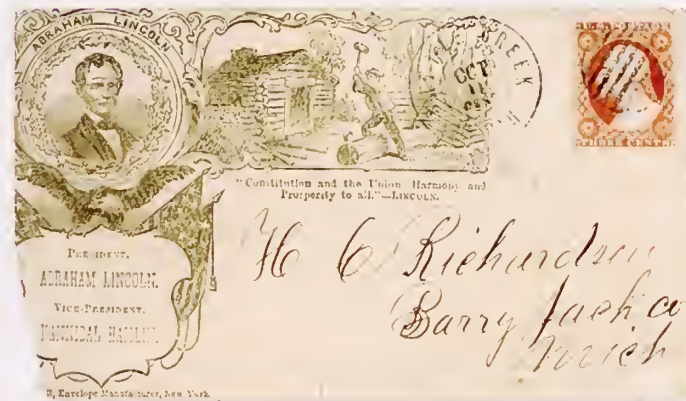 ABRAHAM LINCOLN
CREEK
OCT
11
U.S. POSTAGE
THREE CENTS
"Constitution and the Union Harmony and
Prosperity to all."—LINCOLN.
PRESIDENT,
ABRAHAM LINCOLN.
VICE-PRESIDENT,
HANNIBAL HAMLIN.
H C Richardson
Barry Jack co
Mich
Envelope Manufacturer, New York.